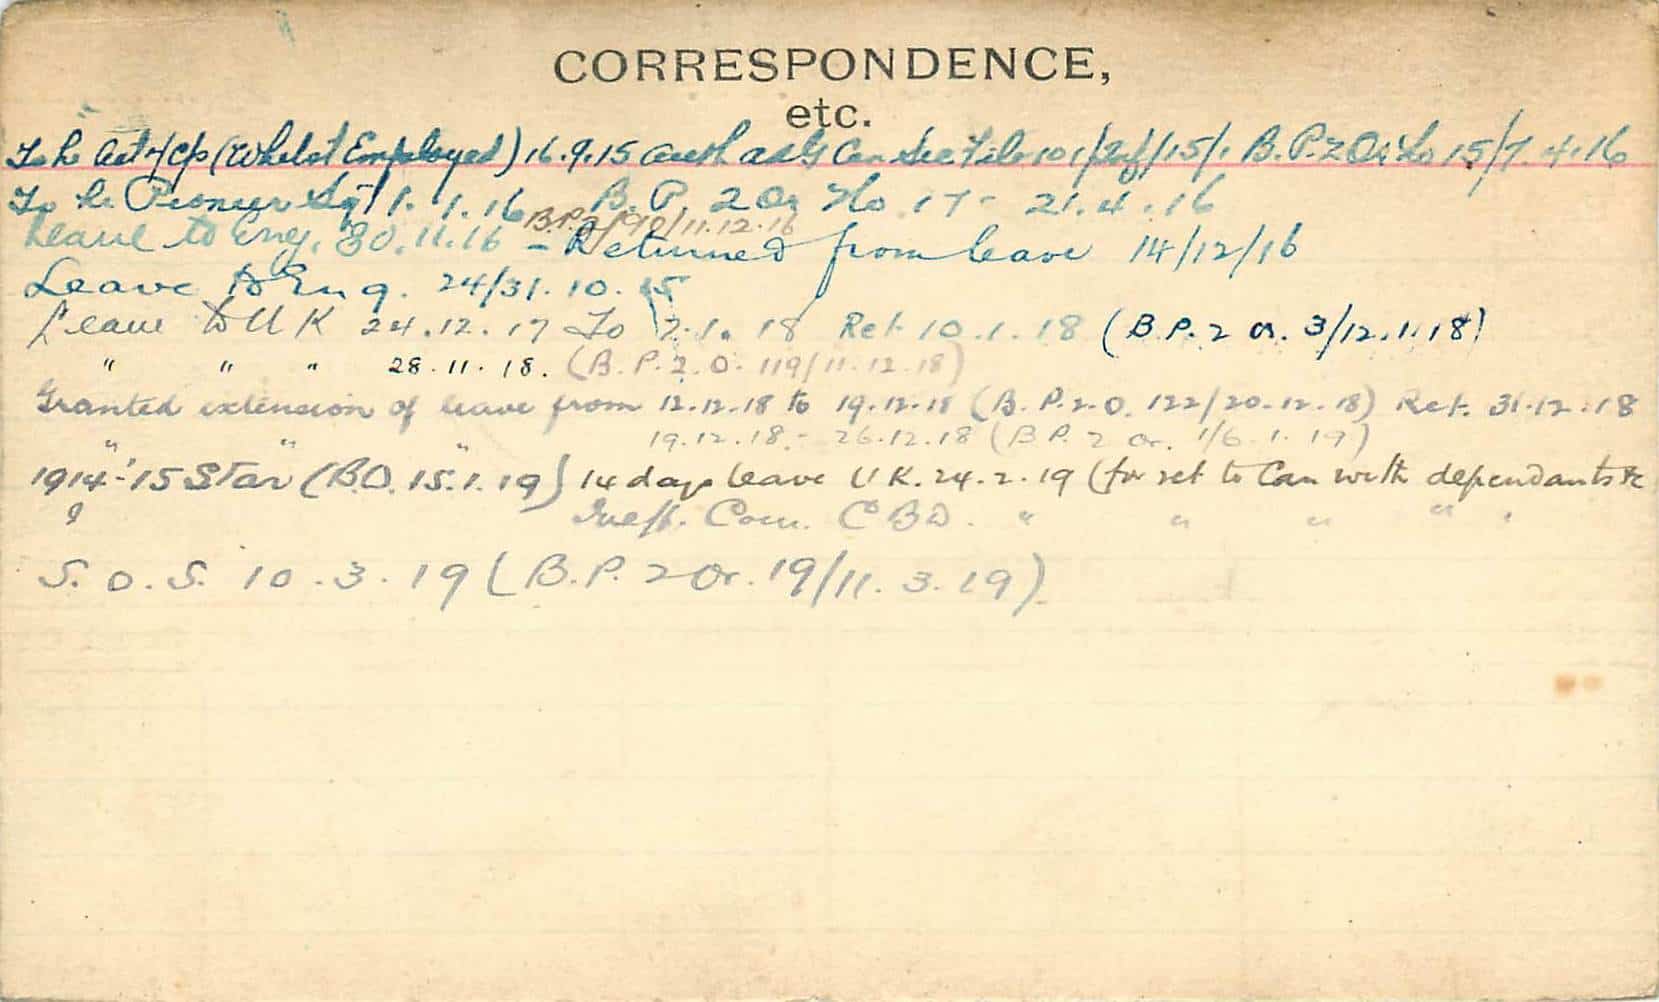 CORRESPONDENCE,
etc.
To be Act/Cpl (Whilst Employed) 16.9.15 auth aag Can Sec File 101/Inf/15/. B.P.2 Or No 15/7.4.16
To be Pioneer Sgt 1.1.16 B.P. 2 Or No 17 - 21.4.16
B.P.2/90/11.12.16
Leave to Eng. 30.11.16 - Returned from leave 14/12/16
Leave to Eng. 24/31.10.15
Leave to UK 24.12.17 To 7.1.18 Ret 10.1.18 (B.P.2 or. 3/12.1.18)
" " " 28.11.18. (B.P.2.O. 119/11.12.18)
Granted extension of leave from 12.12.18 to 19.12.18 (B.P.2.O. 122/20.12.18) Ret. 31.12.18
" " " 19.12.18 - 26.12.18 (BP. 2 or. 1/6.1.19)
1914-'15 Star (B.O. 15.1.19) 14 days leave UK. 24.2.19 (for ret to Can with dependants &c
Ineff. Com. CBD. " " " " "
S.O.S. 10.3.19 (B.P. 2 Or. 19/11.3.19)